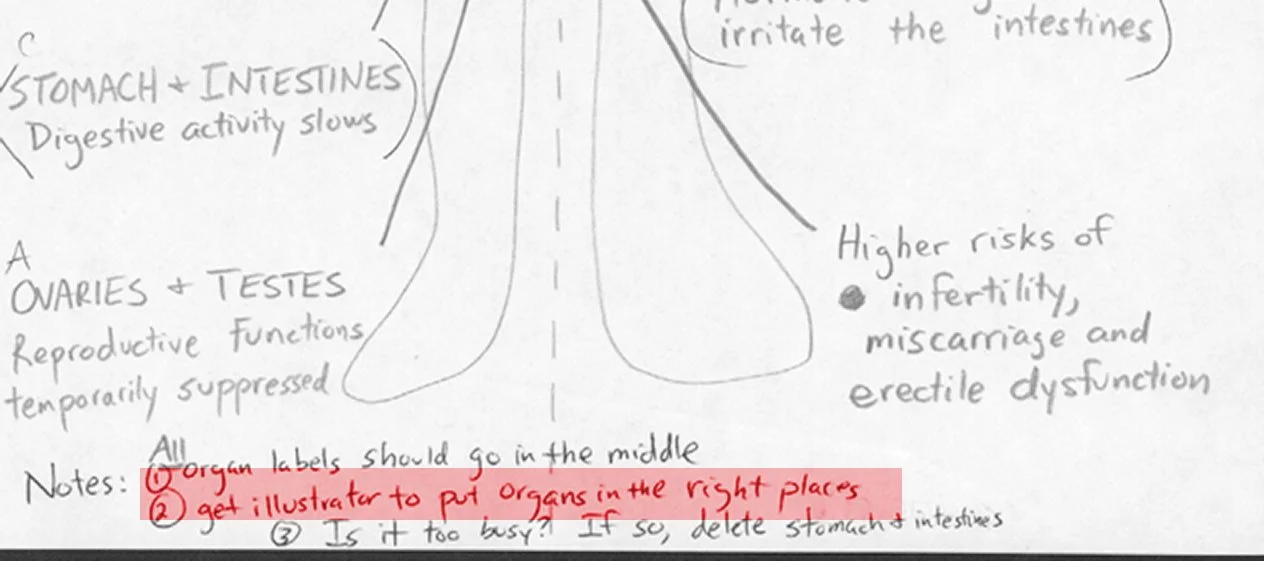 irritate the intestines
C
STOMACH + INTESTINES
Digestive activity slows
Higher risks of
infertility,
miscarriage and
erectile dysfunction
A
OVARIES + TESTES
Reproductive Functions
temporarily suppressed
Notes: ① All organ labels should go in the middle
② get illustrator to put organs in the right places
③ Is it too busy? If so, delete stomach + intestines